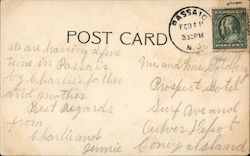 POST CARD
PASSAIC
FEB 11
3 30 PM
N.J.
We are having a fine
time in Passaic
by Charlie's father
and mother
Best Regards
from
Charlie and
Jennie
Mr. and Mrs.
Prospect Hotel
Surf Ave and
Culver Depot
Coney Island